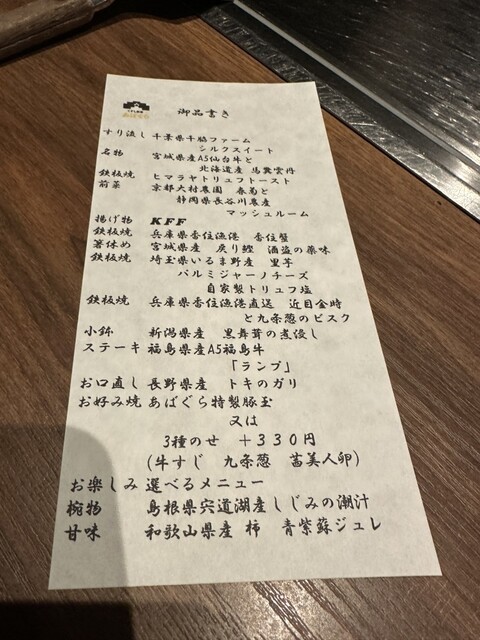 あばぐら
御品書き
すり流し 千葉県千脇ファーム
シルクスイート
名物 宮城県産A5仙台牛と
北海道産 馬糞雲丹
鉄板焼 ヒマラヤトリュフトースト
前菜 京都大村農園 春菊と
静岡県長谷川農産
マッシュルーム
揚げ物 KFF
鉄板焼 兵庫県香住漁港 香住蟹
箸休め 宮城県産 戻り鰹 酒盗の薬味
鉄板焼 埼玉県いるま野産 里芋
パルミジャーノチーズ
自家製トリュフ塩
鉄板焼 兵庫県香住漁港直送 近目金時
と九条葱のビスク
小鉢 新潟県産 黒舞茸の煮浸し
ステーキ 福島県産A5福島牛
「ランプ」
お口直し 長野県産 トキのガリ
お好み焼 あばぐら特製豚玉
又は
3種のせ +330円
(牛すじ 九条葱 茜美人卵)
お楽しみ 選べるメニュー
椀物 島根県宍道湖産しじみの潮汁
甘味 和歌山県産 柿 青紫蘇ジュレ